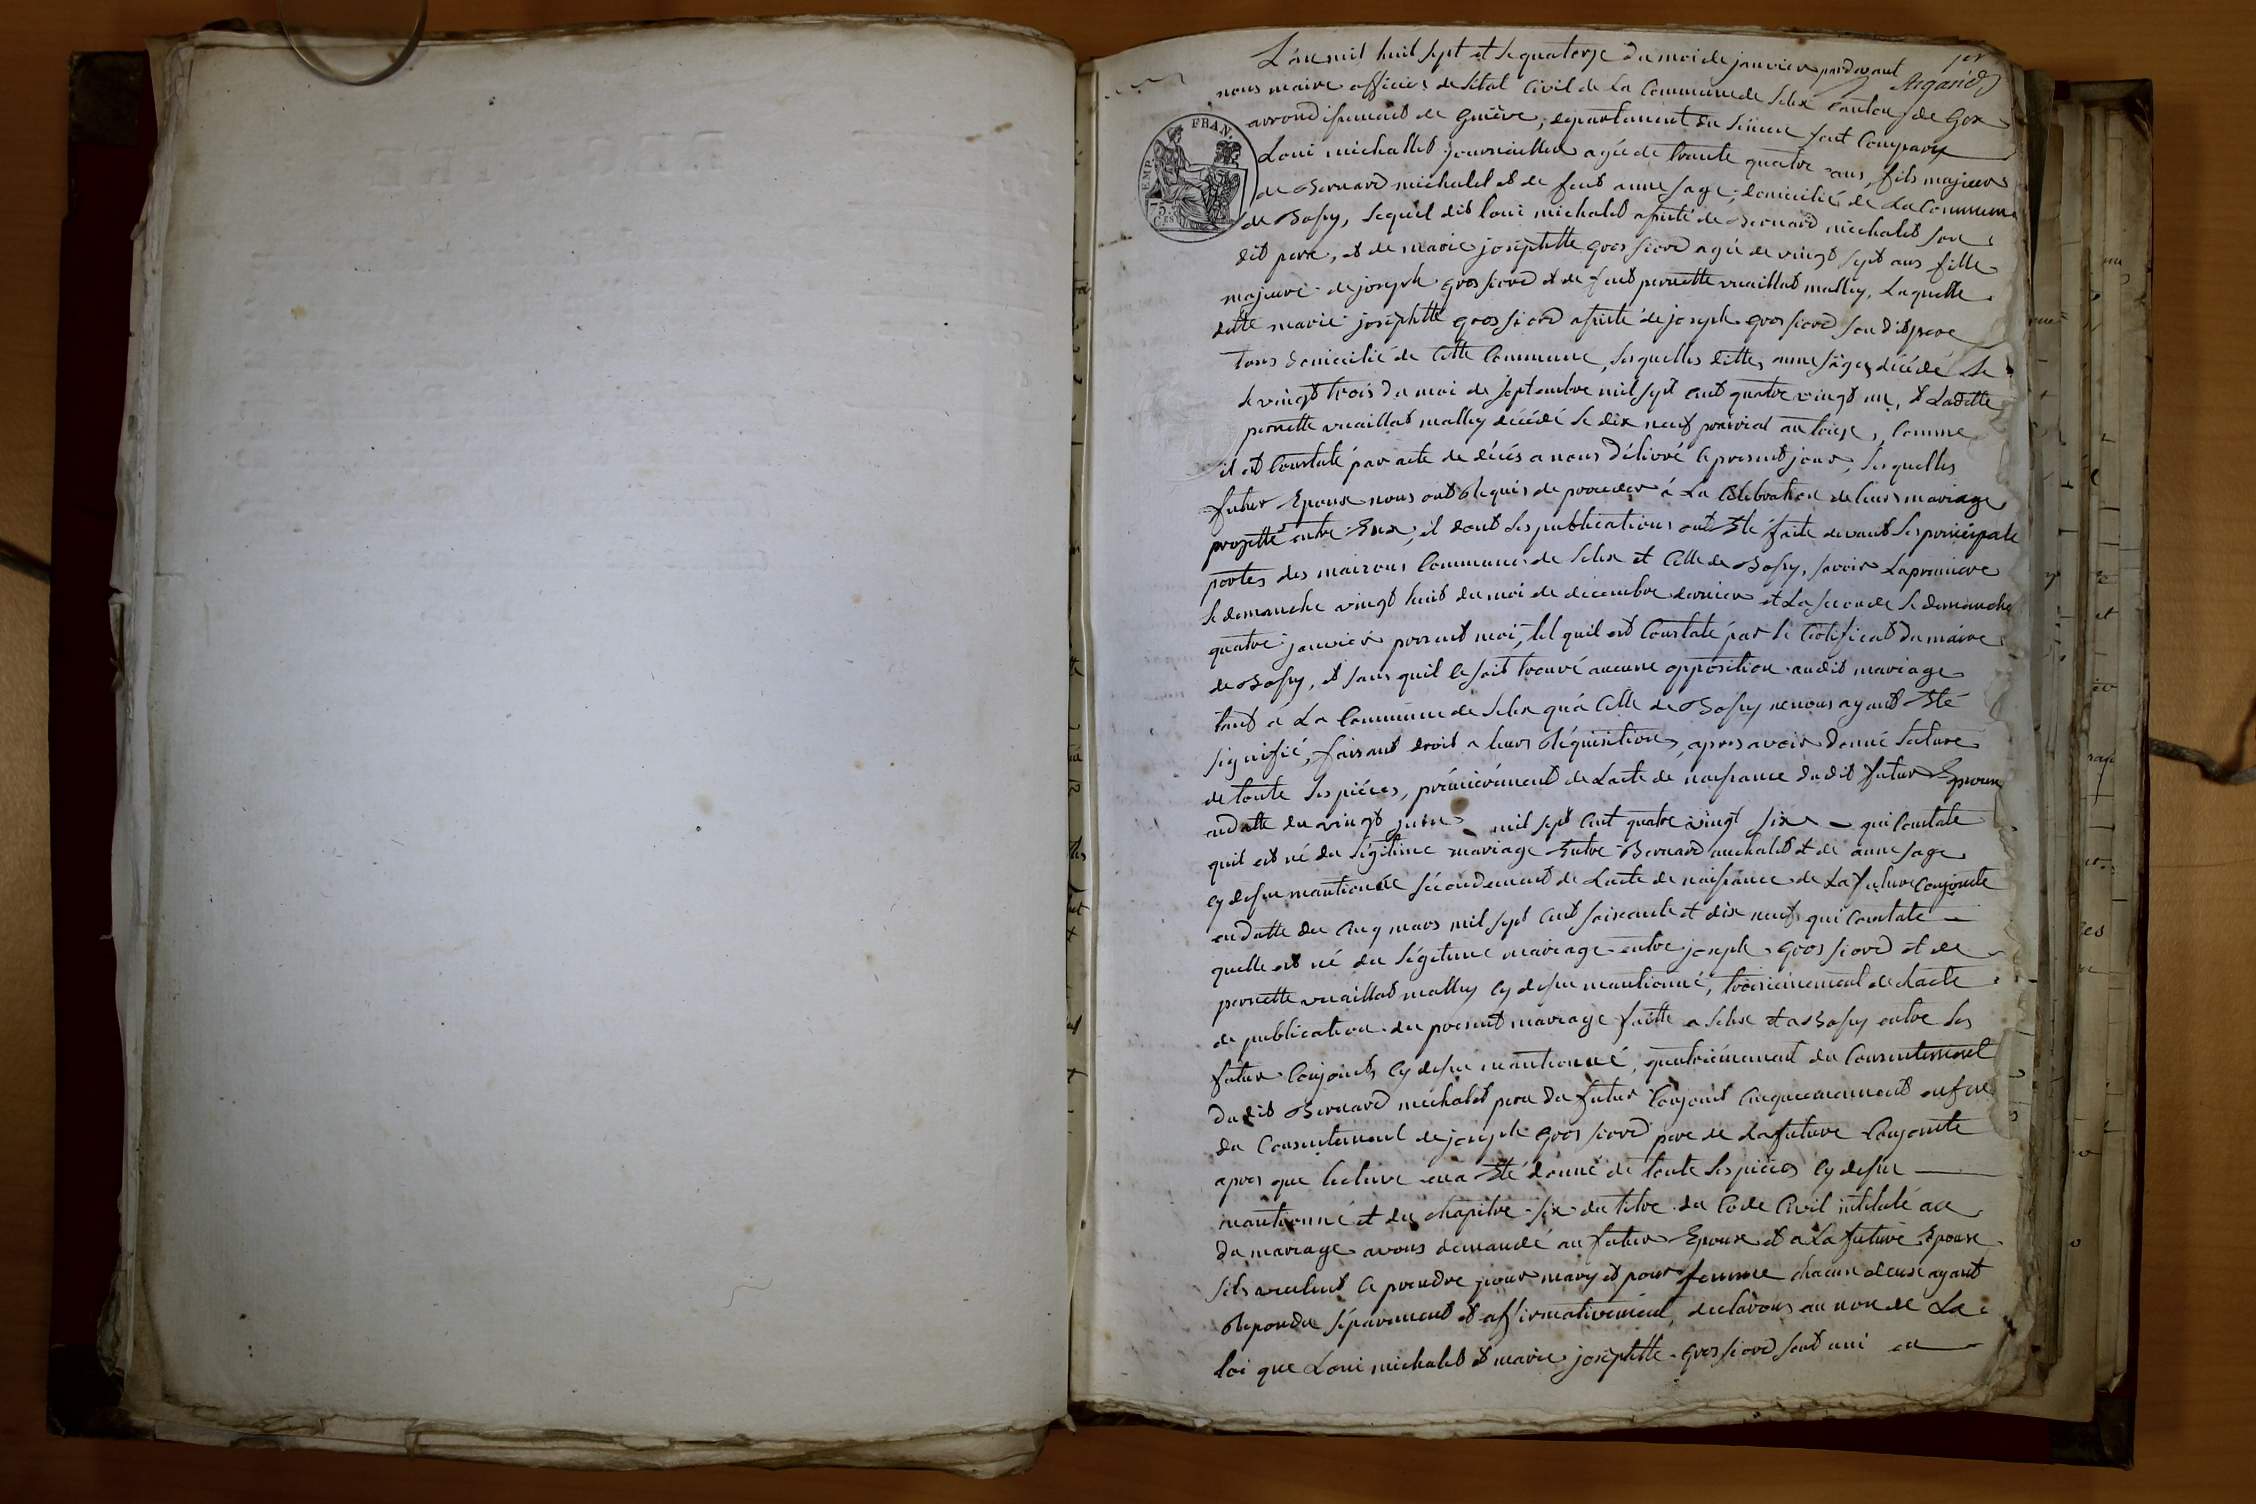 1er
L'an mil huit sept et le quatorze du moi de janvier pardevant
nous maire officier de l'état civil de la Commune de Selex Canton de Gex
arrondissement de Genève, departement du Léman sont Comparu
Loui michallet journaillier agée de trante quatre ans, fils majeur
de Bernard michalet et de feut anne sage, domicilié de la Commune
de Bossy, lequel dit loui michalet assisté de Bernard michalet son
dit pere, et de marie josephtte gros siord agée de vingt sept ans fille
majeure de joseph gros siord et de feut pernette vuaillat malley, Laquelle
ditte marie josephtte gros siord assisté de joseph gros siord son dit pere
tous domicilié de Cette Commune, lesquelles dittes anne sage décédé le
le vingt trois du moi de septembre mil sept cent quatre vingt un, et Laditte
pernette vuaillat malley décédé le dix neuf prairial an treize, Comme
il est Constaté par acte de décés a nous délivré Ce present jour, lesquelles
futur Epoux nous ont Requis de proceder à La Célébration de leurs mariage
projetté entre Eux, et dont les publications ont Eté faite devant les principale
portes des maisons Communes de Selex et Celle de Bossy, savoir La premiere
le demanche vingt huit du moi de decembre dernier et La seconde le demanche
quatre janvier present moi, tel quil est Constaté par le Certificat du maire
de Bossy, et sans quil se soit trouvé aucune opposition audit mariage
tant à La Commune de Selex quà Celle de Bossy ne nous ayant Eté
signifié, faisant droit a leurs Réquisitions, apres avoir donné lecture
de toute les piéces, prémiérement de Lacte de naissance dudit futur Epoux
en datte du vingt juin mil sept Cent quatre vingt six qui Constate
quil est né du légitime mariage Entre Bernard michalet et de anne sage
Cy dessu mantionée sécondement de Lacte de naissance de La future Conjointe
en datte du Cinq mars mil sept Cent soixante et dix neuf qui Constate
quelle est né du légitime mariage entre joseph gros siord et de
pernette vuaillat malley Cy dessu mantionné, troisiémement de Lacte
de publication du present mariage faitte a Selex et a Bossy entre les
futur Conjoints Cy dessu mantionné, quatriémement du Consentement
dudit Bernard michalet pere du futur Conjoint Cinquiemement enfin
du Consentement de joseph gros siord pere de la future Conjointe
apres que lecture en a Eté donné de toute les piéces Cy dessu
mantionné et du chapitre six du titre du Code Civil intitulé acte
du mariage avons demandé au futur Epoux et a La future Epouse
sils veulent Ce prendre pour mary et pour femme chacun deux ayant
Repondu séparement et affirmativement, declarons au nom de La
loi que Loui michalet et marie josephtte gros siord sont uni en
EMP. FRAN.
75.
CES